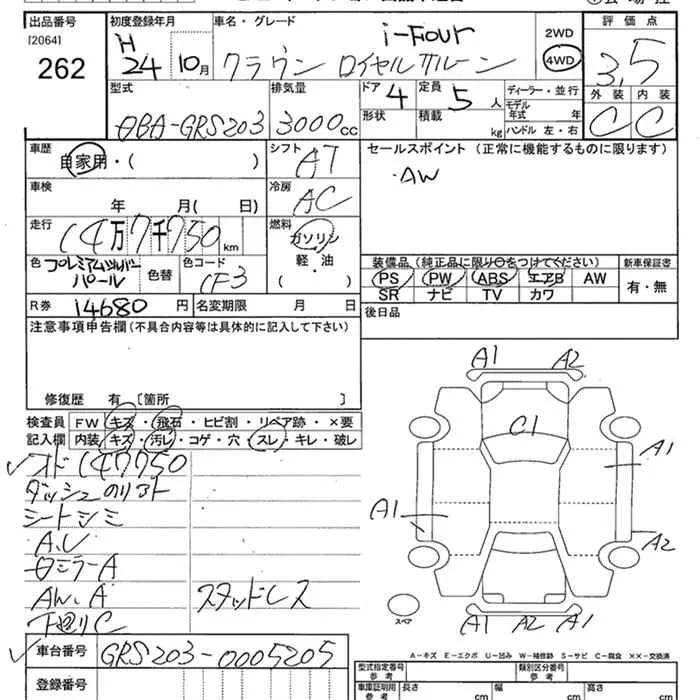 出品番号 初度登録年月 車名・グレード 評価点
[2064] H i-Four 2WD
262 24 10月 クラウン ロイヤルサルーン 4WD 3,5
型式 排気量 ドア 4 定員 5人 ディーラー・並行 外装 内装
DBA-GRS203 3000cc 形状 積載 kg モデル年式 年 ハンドル 左・右 C C
車歴 自家用・( ) シフト AT セールスポイント (正常に機能するものに限ります)
車検 年 月( 日) 冷房 AC ・AW
走行 14万7千750km 燃料 ガソリン
軽・油
( )
色 プレミアムシルバーパール 色替 色コード 1F3
装備品(純正品に限り○をつけてください) 新車保証書
PS PW ABS エアB AW 有・無
SR ナビ TV カワ
R券 14680円 名変期限 月 日 後日品
注意事項申告欄(不具合内容等は具体的に記入して下さい)
修復歴 有 [箇所 ]
検査員 FW キズ・飛石・ヒビ割・リペア跡・×要
記入欄 内装 キズ・汚レ・コゲ・穴・スレ・キレ・破レ
オド 147750
ダッシュのリフト
シートシミ
A,U
ミラーA
AW.A スタッドレス
下廻りC
車台番号 GRS203-0005205
登録番号
A1 A2
C1
A1
A1
A2
A1 A2 A1
スペア
A-キズ E-エクボ U-凹み W-補修跡 S-サビ C-腐食 ××-交換済
型式指定番号 参考 類別区分番号 参考
車庫証明用 参考 長さ cm 幅 cm 高さ cm